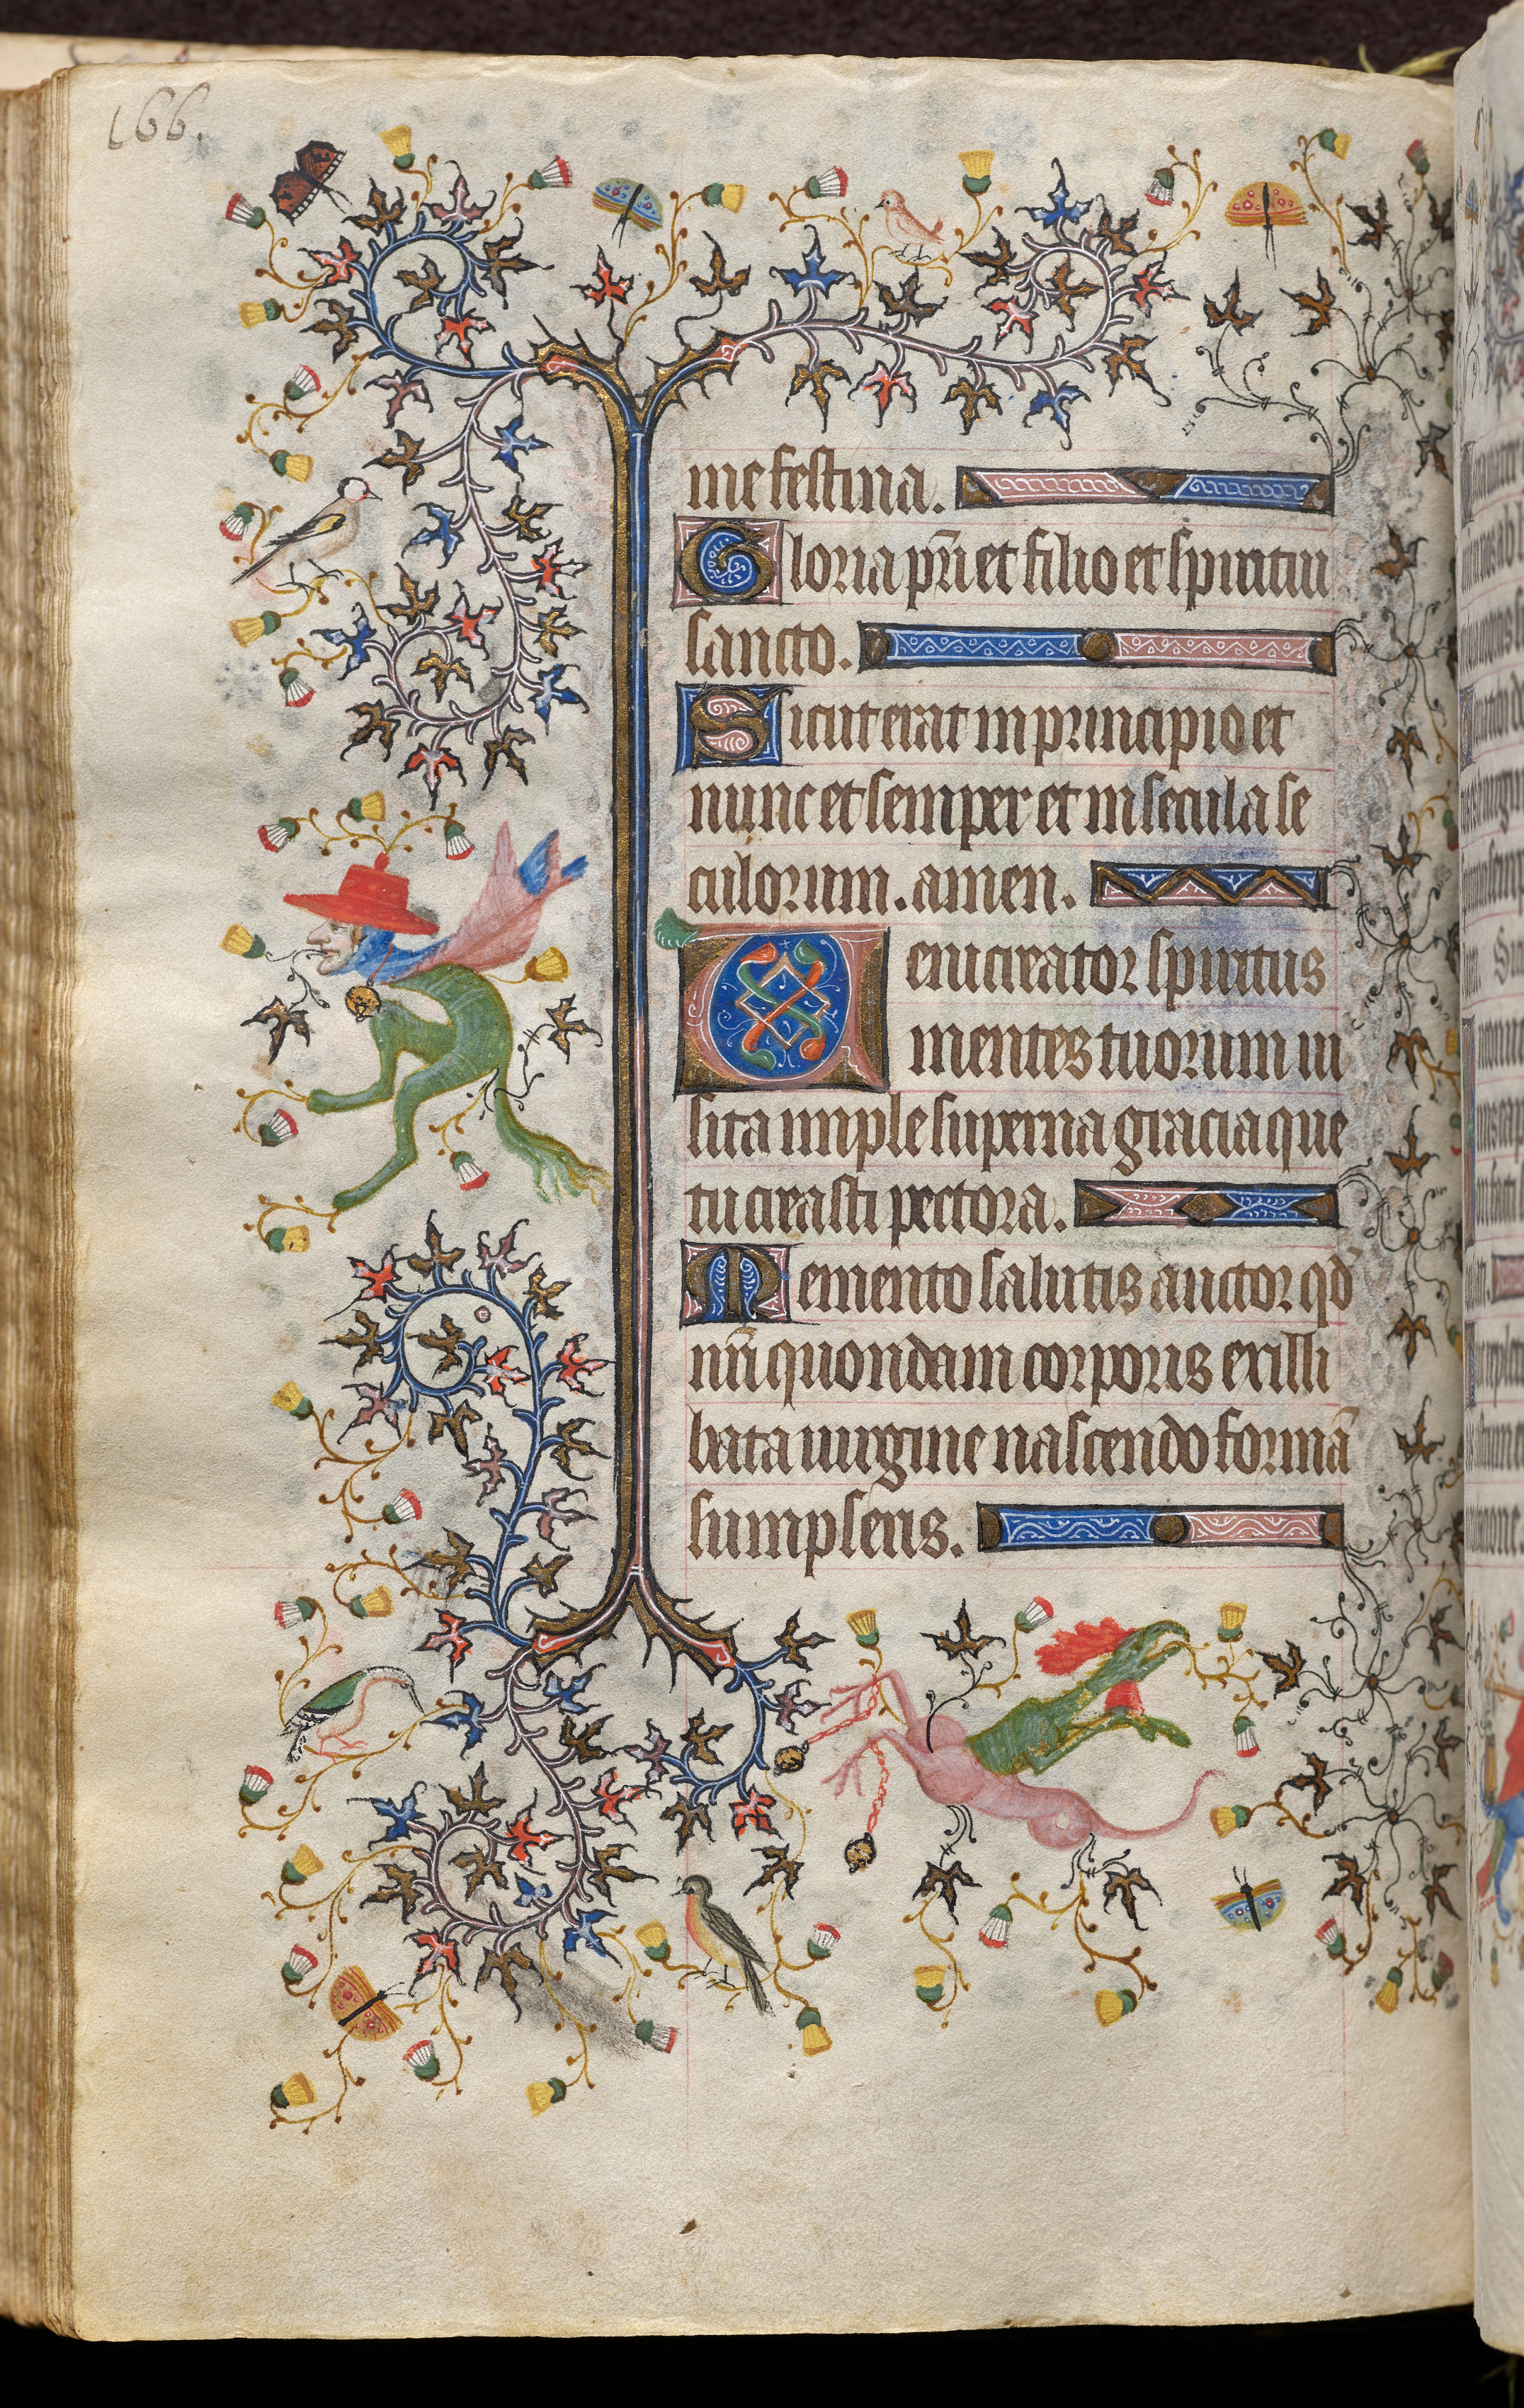 166.
me festina.
Gloria pr̄i et filio et spiritui
sancto.
Sicut erat in principio et
nunc et semper et in secula se
culorum. amen.
Veni creator spiritus
mentes tuorum ui
sita imple superna gracia que
tu creasti pectora.
Memento salutis auctor qd̛
nr̄i quondam corporis ex illi
bata uirgine nascendo formā
sumpseris.